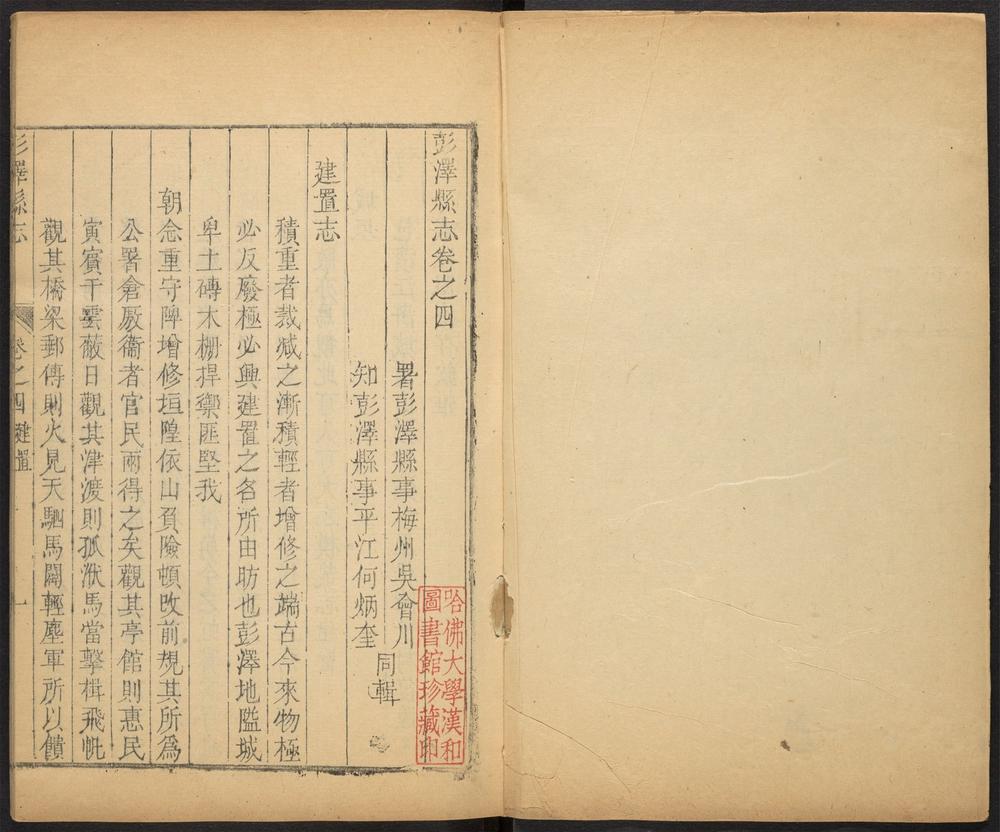 彭澤縣志卷之四
署彭澤縣事梅州吳會川
知彭澤縣事平江何炳奎
同輯
建置志
積重者裁减之漸積輕者增修之端古今來物極
必反廢極必興建置之名所由昉也彭澤地隘城
卑土磚木柵捍禦匪堅我
朝念重守陴增修垣隍依山負險頓改前規其所爲
公署倉厫衞者官民兩得之矣觀其亭館則惠民
寅賓干雲蔽日觀其津渡則孤洑馬當擊楫飛帆
觀其橋梁郵傳則火見天駟馬闢輕塵軍所以饋
彭澤縣志
卷之四建置
一
哈佛大學漢和
圖書館珍藏印